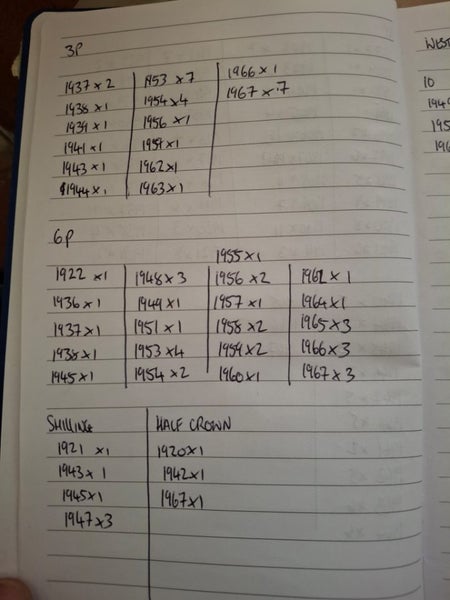 3P
1937 x 2 1953 x 7 1966 x 1
1938 x 1 1954 x 4 1967 x 7
1939 x 1 1956 x 1
1941 x 1 1959 x 1
1943 x 1 1962 x 1
1944 x 1 1963 x 1
6P
1955 x 1
1922 x 1 1948 x 3 1956 x 2 1962 x 1
1936 x 1 1949 x 1 1957 x 1 1964 x 1
1937 x 1 1951 x 1 1958 x 2 1965 x 3
1938 x 1 1953 x 4 1959 x 2 1966 x 3
1945 x 1 1954 x 2 1960 x 1 1967 x 3
SHILLING HALF CROWN
1921 x 1 1920 x 1
1943 x 1 1942 x 1
1945 x 1 1967 x 1
1947 x 3
WEST
10
194
195
196